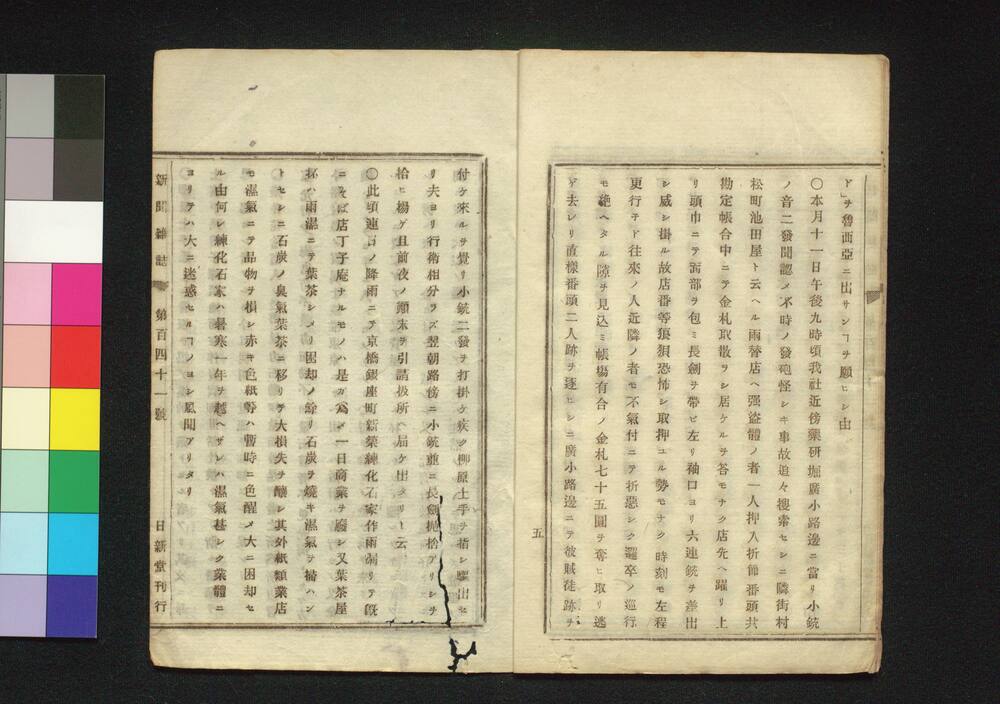 ド」ヲ魯西亞ニ出サンヿヲ願ヒシ由
〇本月十一日午後九時頃我社近傍藥研堀廣小路邊ニ當リ小銃
ノ音二發聞認メ不時ノ發砲怪シキ事故追々搜索セシニ隣街村
松町池田屋ト云ヘル兩替店ヘ强盜體ノ者一人押入折節番頭共
勘定帳合中ニテ金札取散ヲシ居ケルヲ荅モナク店先ヘ躍リ上
リ頭巾ニテ面部ヲ包ミ長劍ヲ帶ビ左リ袖口ヨリ六連銃ヲ差出
シ威シ掛ル故店番等狼狽恐怖シ取押ユル勢モナク時刻モ左程
更行テド往來ノ人近隣ノ者モ不氣付ニテ折惡シク邏卒ノ巡行
モ絶ヘタル隙ヲ見込ミ帳場有合ノ金札七十五圓ヲ奪ヒ取リ逃
ド去レリ直樣番頭二人跡ヲ逐ヒシニ廣小路邊ニテ彼賊徒跡ヲ
五
付ケ來ルヲ覺リ小銃二發ヲ打掛ケ疾ク柳原土手ヲ指シ驅出セ
リ夫ヨリ行衛相分ラズ翌朝路傍ニ小銃並ニ長劍抛捨アリシヲ
拾ヒ揚ゲ且前夜ノ顚末ヲ引請扱所ヘ屆ケ出タリト云
〇此頃連日ノ降雨ニテ京橋銀座町新築練化石家作雨漏リテ旣
ニそば店丁子庵ナルモノハ是ガ爲メ一日商業ヲ廢シ又葉茶屋
抔ハ雨濕ニテ葉茶シメリ困却ノ餘リ石炭ヲ燒キ濕氣ヲ拂ハン
トセシニ石炭ノ臭氣葉茶ニ移リテ大損失ヲ釀シ其外紙類業店
モ濕氣ニテ品物ヲ損シ赤キ色紙等ハ暫時ニ色醒メ大ニ困却セ
ル由何レ練化石家ハ暑寒一年ヲ越ヘザレハ濕氣甚シク業體ニ
ヨリテハ大ニ迷惑セルヿノヨシ風聞アリタリ
新聞雜誌 第百四十一號 日新堂刊行